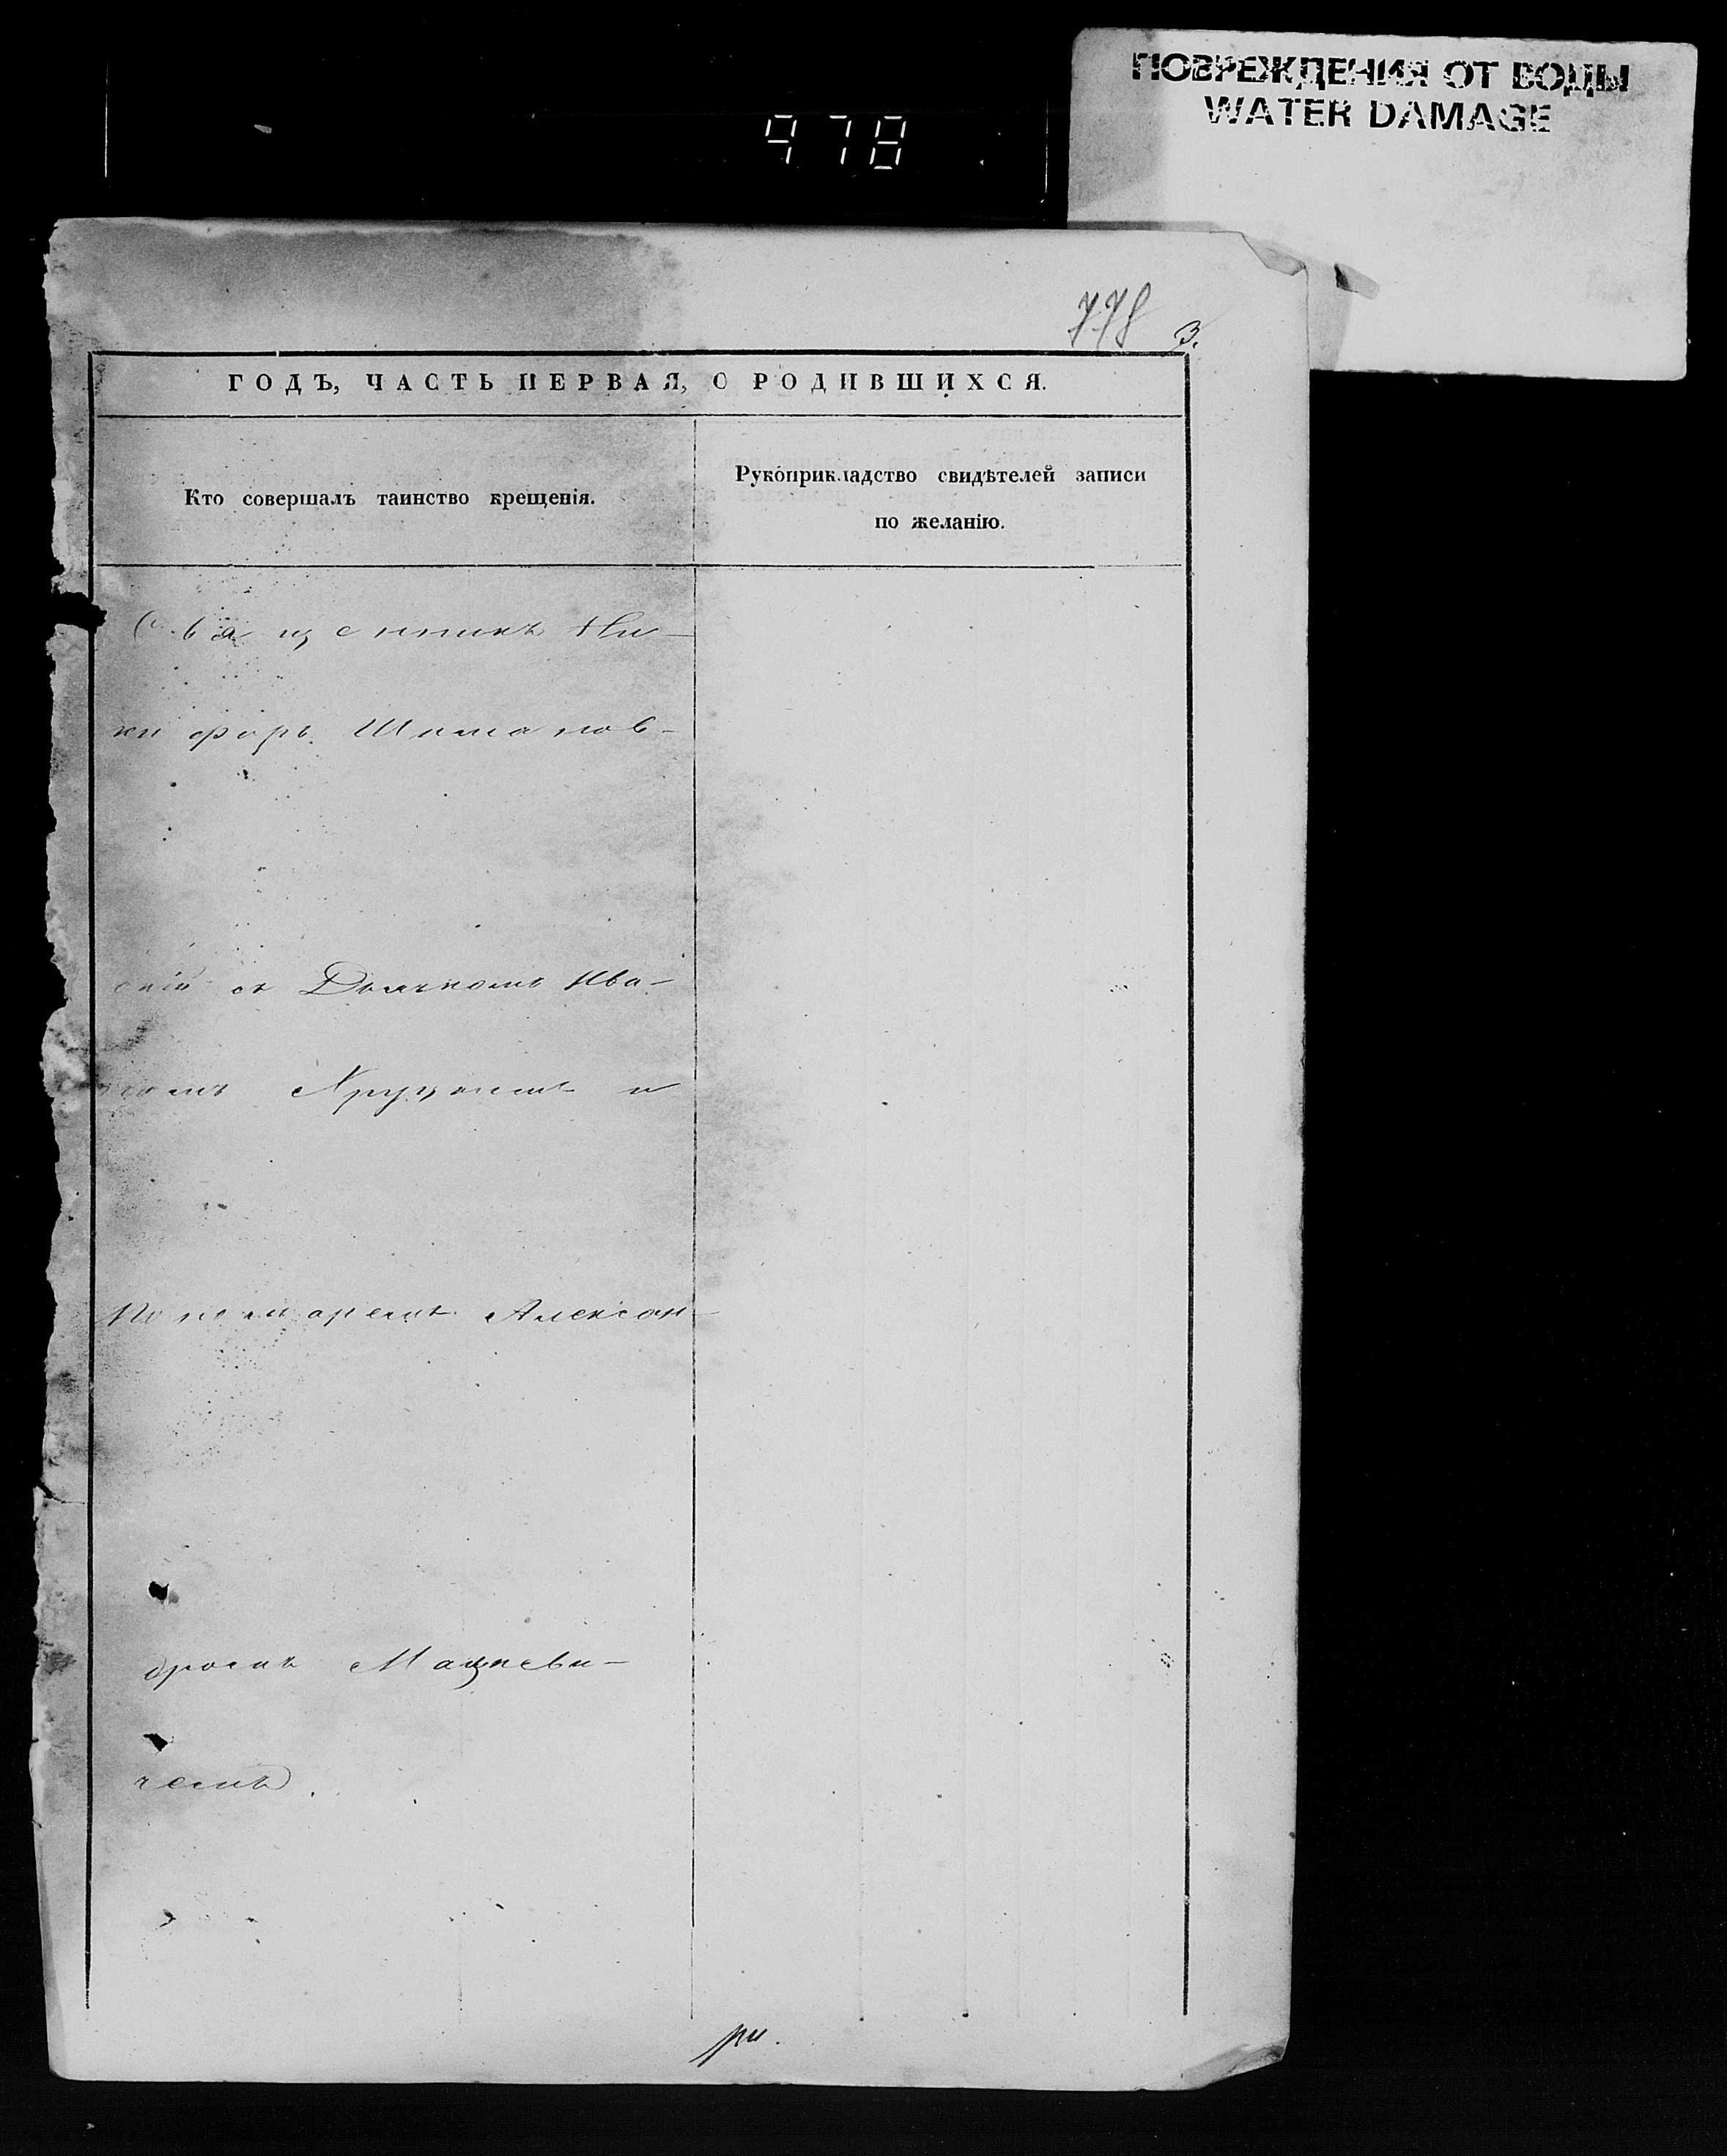 ПОВРЕЖДЕНИЯ ОТ ВОДЫ
WATER DAMAGE
978
778 3.
ГОДЪ, ЧАСТЬ ПЕРВАЯ, О РОДИВШИХСЯ.
Кто совершалъ таинство крещенія.
Рукоприкладство свидѣтелей записи
по желанію.
Священникъ Ни-
кифоръ Шиманов-
скій съ Дьячкомъ Ива-
номъ Хруцкимъ и
Пономаремъ Алексан-
дромъ Мацкеви-
чемъ.